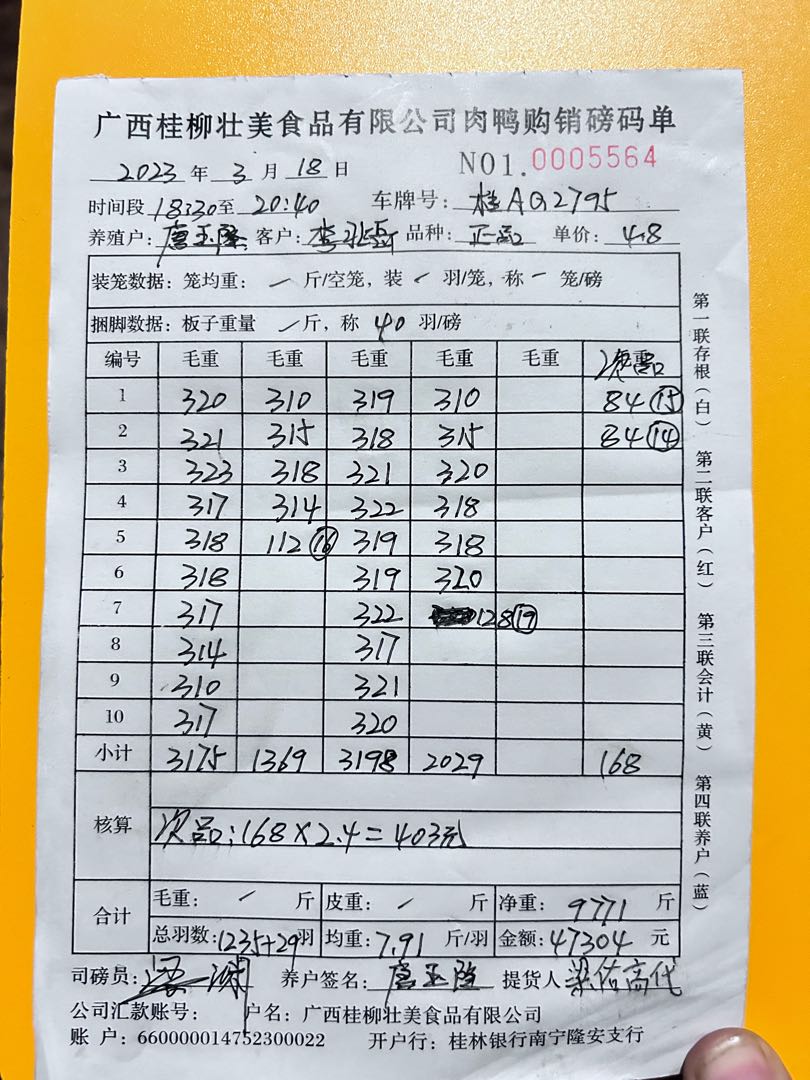 广西桂柳壮美食品有限公司肉鸭购销磅码单
2023 年 3 月 18 日 NO1.0005564
时间段 18:30 至 20:40 车牌号: 桂AQ2795
养殖户: 唐玉隆 客户: 李 品种: 正品 单价: 4.8
装笼数据: 笼均重: / 斤/空笼, 装 / 羽/笼, 称 一 笼/磅
捆脚数据: 板子重量 / 斤, 称 40 羽/磅
编号 毛重 毛重 毛重 毛重 毛重 次品
1 320 310 319 310 84 ⑮
2 321 315 318 315 84 ⑭
3 323 318 321 320
4 317 314 322 318
5 318 112 ⑯ 319 318
6 318 319 320
7 317 322 128 ⑲
8 314 317
9 310 321
10 317 320
小计 3175 1369 3198 2029 168
核算
次品:168×2.4=403元
合计
毛重: / 斤 皮重: / 斤 净重: 9771 斤
总羽数: 1235+29 羽 均重: 7.91 斤/羽 金额: 47304 元
司磅员: 养户签名: 唐玉隆 提货人 梁佑高代
公司汇款账号: 户名: 广西桂柳壮美食品有限公司
账 户: 660000014752300022 开户行: 桂林银行南宁隆安支行
第一联存根(白)
第二联客户(红)
第三联会计(黄)
第四联养户(蓝)